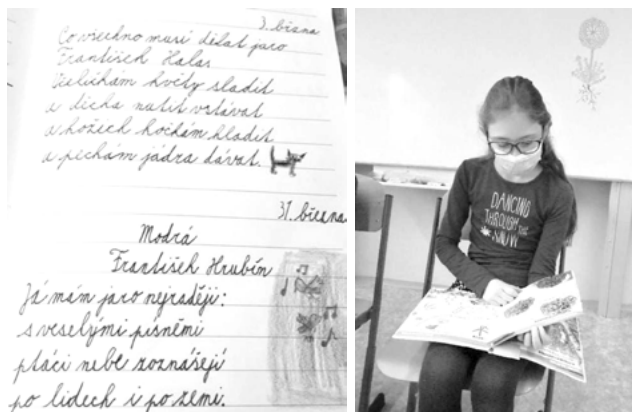 3. března
Co všechno musí dělat jaro
František Halas
Včeličkám květy sladit
a děcka nutit vstávat
a kožich kočkám hladit
a peckám jádra dávat.
31. března
Modrá
František Hrubín
Já mám jaro nejraději:
s veselými písněmi
ptáci nebe roznášejí
po lidech i po zemi.
DANCING
THROUGH THE
SNOW